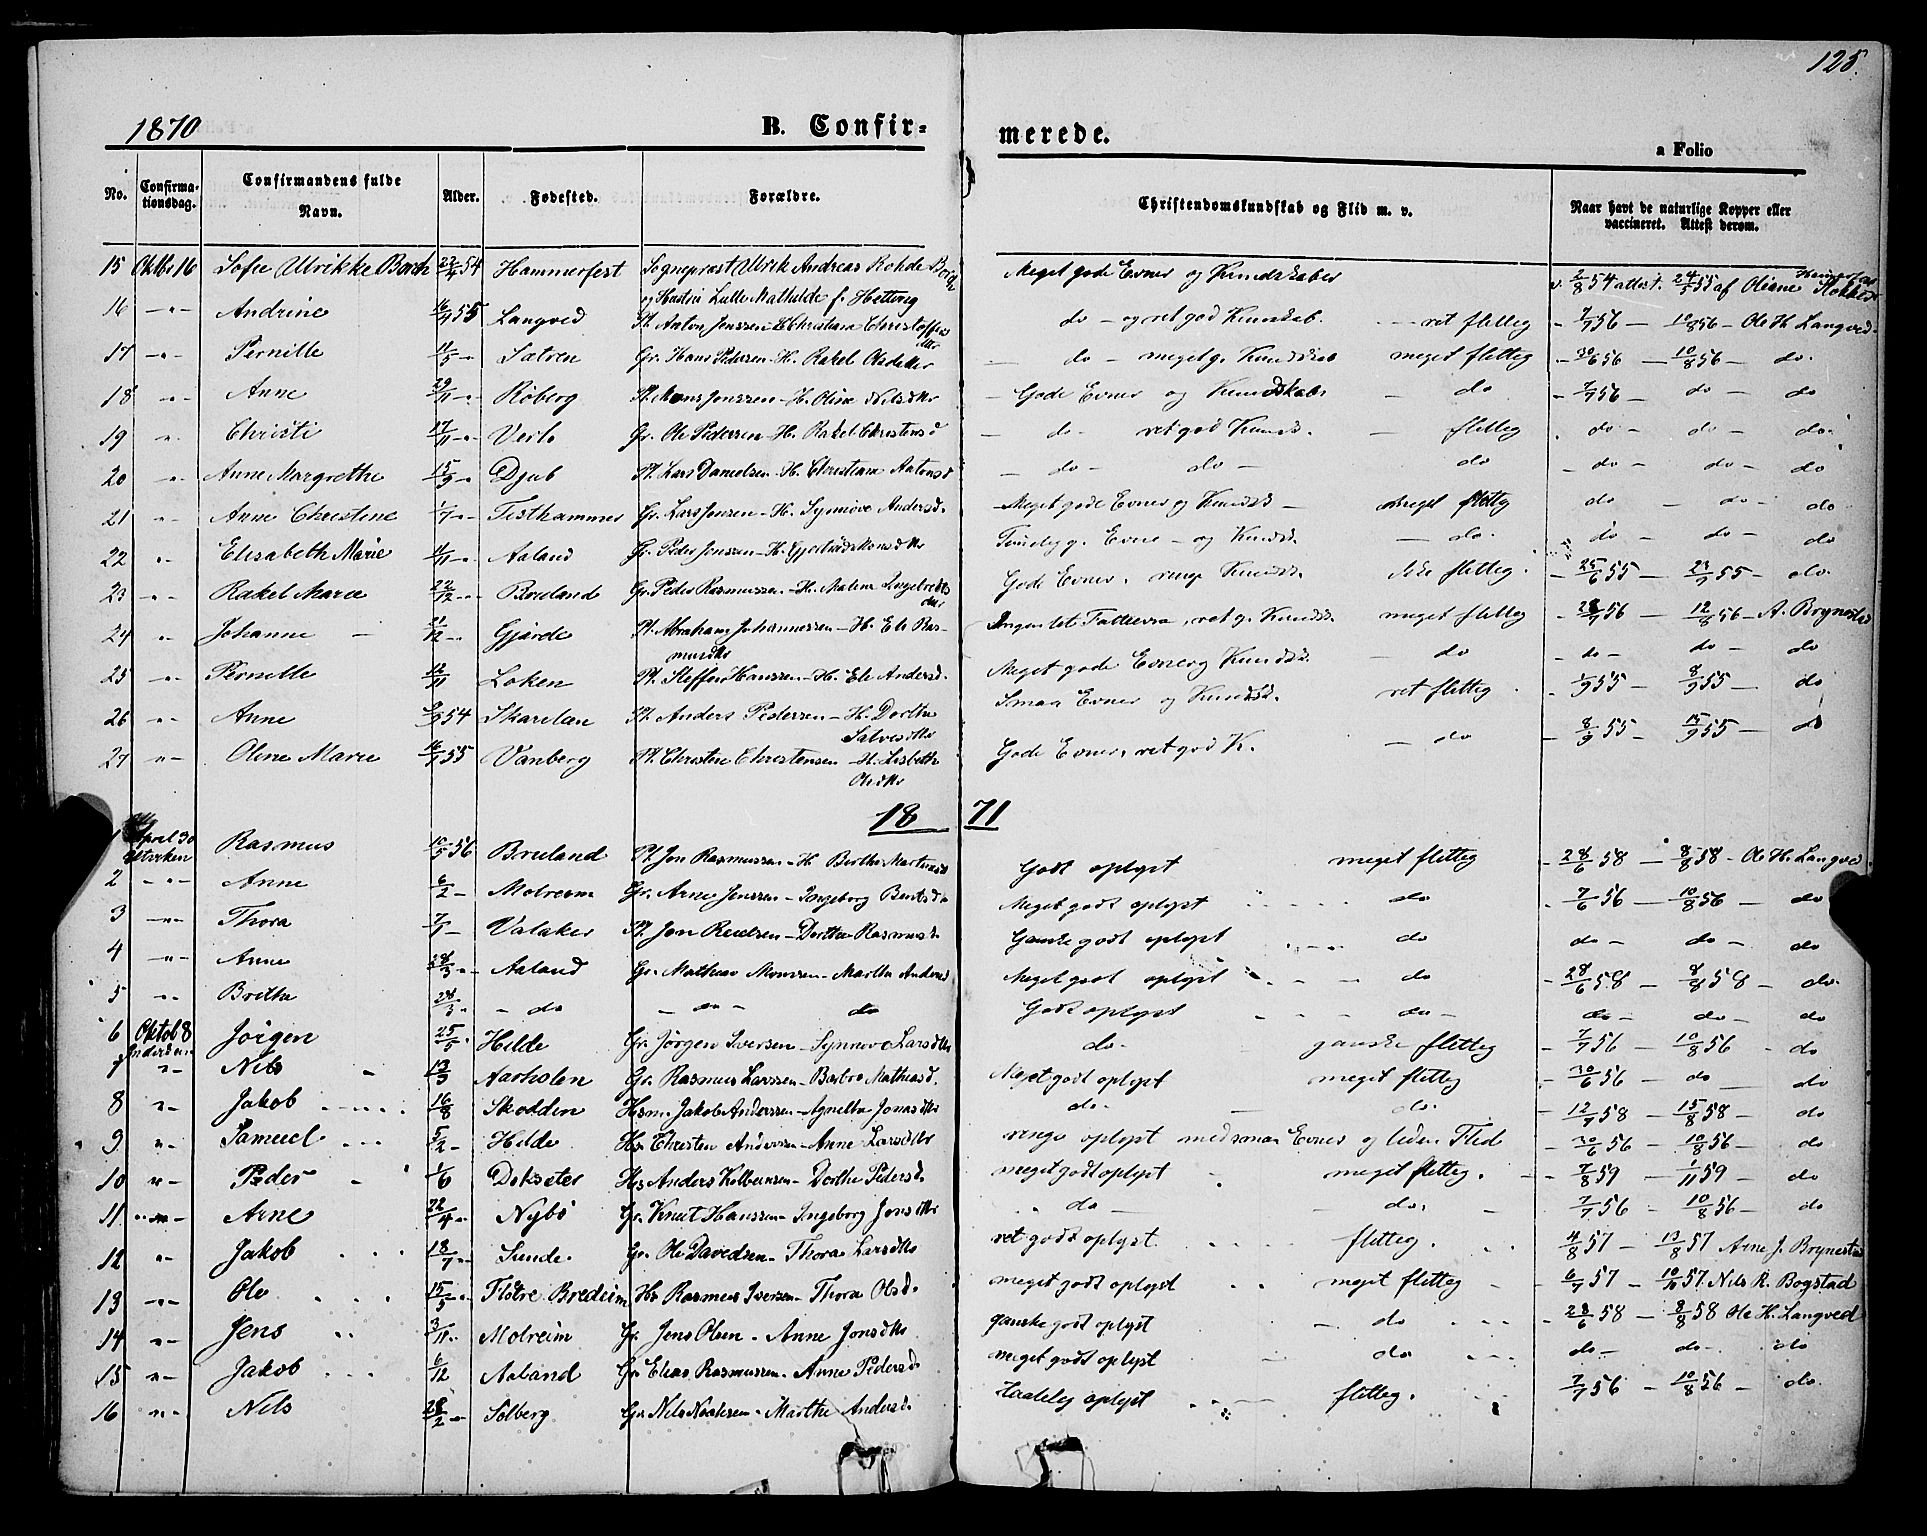 125.
1870
B. Confir-
merede.
a Folio
No. Confirma-tionsdag. Confirmandens fulde Navn. Alder. Fødested. Forældre. Christendomskundskab og Flid m. v. Naar havt de naturlige Kopper eller vaccineret. Attest derom.
15 Oktbr 16 Sofie Ulrikke Borch 54 Hammerfest Sognepræst Ulrik Andreas Rohde Borch Meget gode Evner og Kundskaber 2/8 54 attest. 24/5 55 af Oliane
og Hustru Lulle Mathilde f. Hetting
16 -"- Andrine 16/4 55 Langved Pl. Anton Jenssen - H. Christiane Christoffersdtr do - og ret god Kundskab. - ret flittig - 7/7 56 - 10/8 56 - Ole H. Langved.
17 -"- Pernille 11/5 - Sætren Gr. Hans Pedersen - H. Rakel Olsdatter - do - meget g. Kundskab meget flittig - 30/6 56 - 10/8 56 - do.
18 " Anne 29/11 - Roberg Pl. Mons Jonssen - H. Oline Nilsdtr - Gode Evner og Kundskab. - do - 7/7 56 - do - do
19 " Christi 17/11 - Gr. Ole Pedersen - H. Rakel Christensd - do - ret god Kunds. - flittig - do - do - do.
20 " Anne Margrethe 15/9 - Djub Pl. Lars Danielsen - H. Christiane Antonsd - do - do - do - do - do - do
21 " Anne Christine 1/7 - Testhammer Gr. Lars Jensen - H. Synnøve Andersd. Meget gode Evner og Kundsk - meget flittig do - do - do
22 " Elisabeth Marie 11/11 - Aaland Gr. Peder Jenssen - H. Gjertrud Evne - og Kundsk. - do. do - do - do
23 -"- Rakel Marie 22/12 - Breland Gr. Peder Rasmussen - H. Malene Gode Evner, ringe Kundsk. ikke flittig. - 25/6 55 - 55 - do.
24 " Johanne - 21/12 - Gjørde Pl. Abraham Johannessen - H. Eli Ras-mundtr ret g. Kundsk. meget flittig - 56 - 12/8 56 - A. Brynestad
25 " Pernille 12/11 Løken Pl. Steffen Hanssen - H. Eli Andersd. Meget gode Evner og Kundsk. - do - do - do - do
26 " Anne 54 Skarelan Pl. Anders Pedersen - H. Dorthe Salvesdtr Smaa Evner og Kundsk. ret flittig - 1/9 55 - 8/9 55 - do
27 " Oline Marie 16/7 55 Vanberg Pl. Christen Christensen - H. Lisbeth Olsdtr Gode Evner, ret god K. - do - 8/9 55 - 15/9 55 - do
1871
1 April 30 Rasmus 10/5 56 Breland Pl. Jon Rasmussen - H. Berthe Martinusd Godt oplyst meget flittig - 28/6 58 - 8/8 58 - Ole H. Langved.
2 -"- Anne 6/2 - Molreim Gr. Arne Jenssen - Ingeborg Bentsd Meget godt oplyst do - 7/6 56 - 10/8 56 - do
3 -"- Thora 7/1 - Valaker Pl. Jon Reselsen - Dorthe Rasmusd. Ganske godt oplyst do do - do - do
4 -"- Anne 28/3 - Aaland Gr. Mathias Monssen - Marthe Andersd Meget godt oplyst do - 28/6 58 - 8/8 58 - do.
5 " Brithe 28/3 - - do - " - do Godt oplyst - do - do - do - do
6 Oktob 8 Jørgen 25/5 Hilde Gr. Jørgen Iversen - Synneve Larsdtr do - ganske flittig - 7/7 56 - 10/8 56 - do
7 " Nils 13/3 Aarholen Gr. Rasmus Larssen - Barbro Mathiasd. Meget godt oplyst meget flittig - 30/6 56 - do - do
8 " Jakob 16/8 Skodden Hsm. Jakob Anderssen - Agnethe Jonasdtr do - do. - 12/7 58 - 15/8 58 - do
9 " Samuel 5/2 - Hilde Hs. Christen Andersen - Anne Larsdtr ringe oplyst med smaa Evner og liden Flid - 30/6 56 - 10/8 56 - do
10 " Peder 1/6 Dokseter Hs. Anders Kolbensen - Dorthe Pedersd. meget godt oplyst meget flittig. - 7/8 59 - 1/11 59 - do
11 -"- Arne 22/4 - Nybø Gr. Knut Hanssen - Ingeborg Jonsdtr do - do. - 7/7 56 - 10/8 56 - do
12 " Jakob 18/7 - Sunde. Gr. Ole Davidsen - Thora Larsdtr ret godt oplyst flittig. 4/8 57 - 13/8 57 Arne J. Brynestad
13 -"- Ole 15/5 - Flotre Bredeim Hs Rasmus Iversen - Thora Olsd. meget godt oplyst meget flittig - 6/7 57 - 57 Nils R. Bogstad
14 " Jens 3/11 - Molreim Gr. Jens Olsen - Anne Jonsdtr ganske godt oplyst - do - 28/6 58 - 8/8 58 Ole H. Langved
15 " Jakob 6/12 Aaland Gr. Elias Rasmussen - Anne Pedersd. meget godt oplyst - do do - do - do
16 " Nils 28/2 - Solberg Gr. Nils - Marthe Andersd. taalelig oplyst flittig. 7/7 56 - 10/8 56 - do.